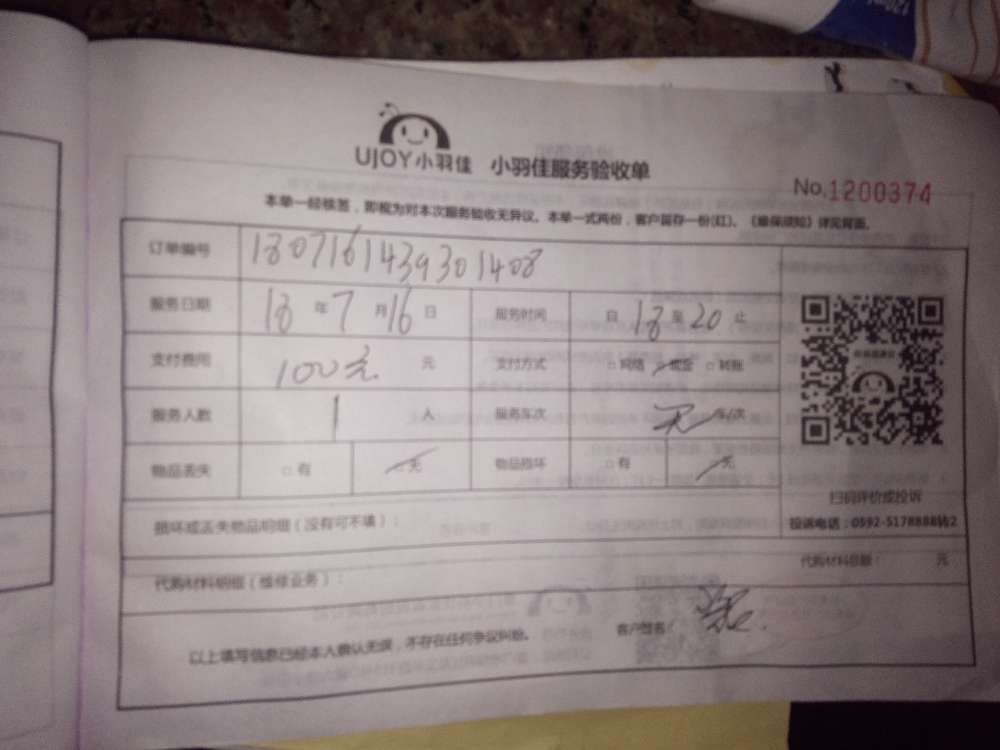 UJOY小羽佳 小羽佳服务验收单
No.1200374
本单一经核签，即视为对本次服务验收无异议。本单一式两份，客户留存一份(红)。《维保须知》详见背面。
订单编号 1807161439301408
服务日期 18 年 7 月 16 日 服务时间 自 18 至 20 止
支付费用 100元 元 支付方式 □网络 □现金 □转账
服务人数 1 人 服务车次 无 车/次
物品丢失 □有 □无 物品损坏 □有 □无
扫码评价或投诉
投诉电话：0592-5178888转2
损坏或丢失物品明细（没有可不填）：
代购材料明细（维修业务）：
代购材料总额： 元
以上填写信息已经本人确认无误，不存在任何争议纠纷。
客户签名：